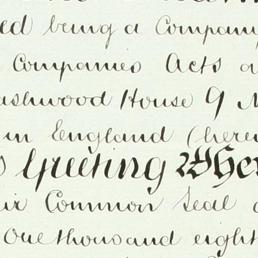 ed being a Company
Companies Acts a
ashwood House 9 N
in England (herei
s Greeting Whe
ir Common Seal
One thousand eight